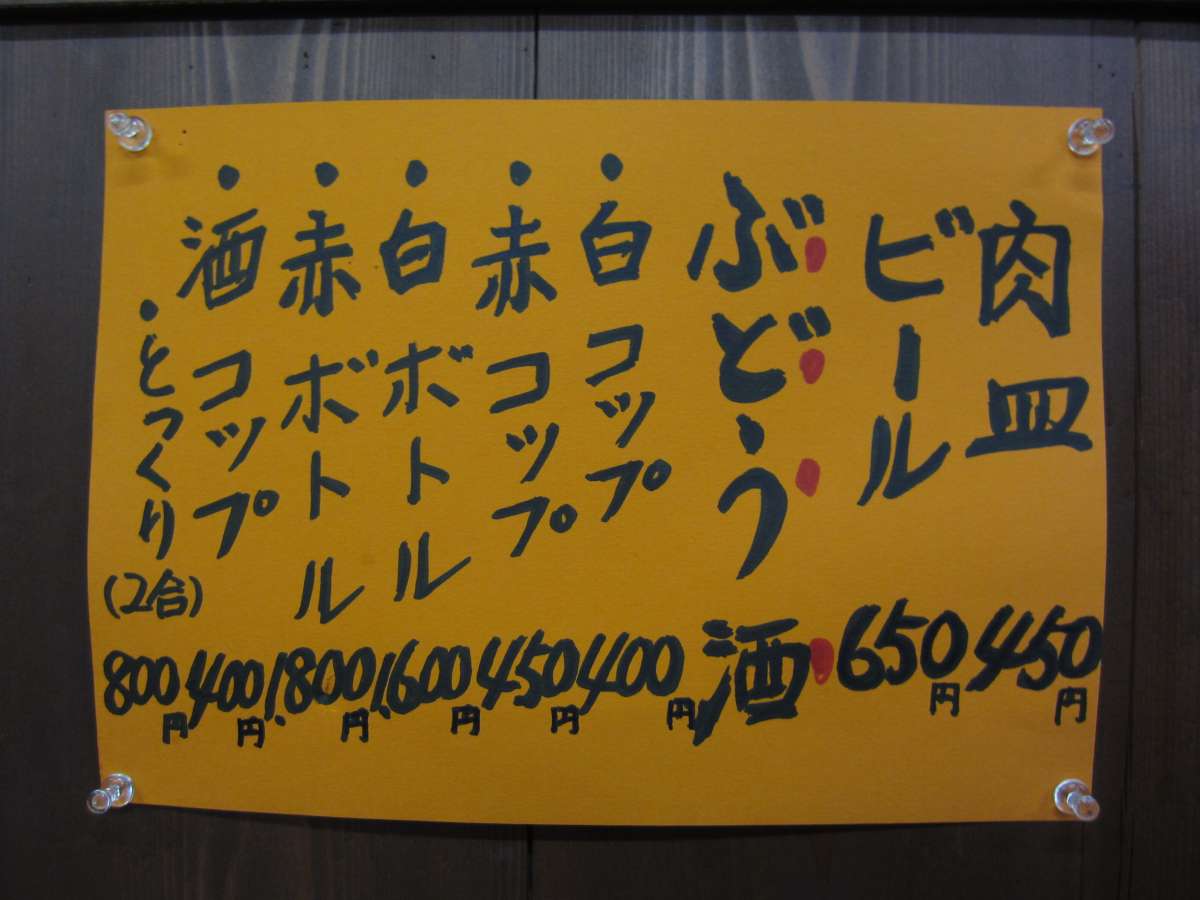 肉皿 450円
ビール 650円
ぶどう酒
・白 コップ 400円
・赤 コップ 450円
・白 ボトル 1.600円
・赤 ボトル 1.800円
・酒 コップ 400円
・とっくり(2合) 800円